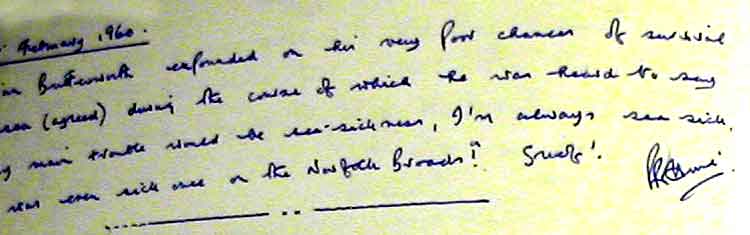 February 1960.
Butterworth expounded on his very poor chances of survival
(agreed) during the course of which he was heard to say
main trouble would be sea-sickness, I'm always sea sick.
was even sick once on the Norfolk Broads!"